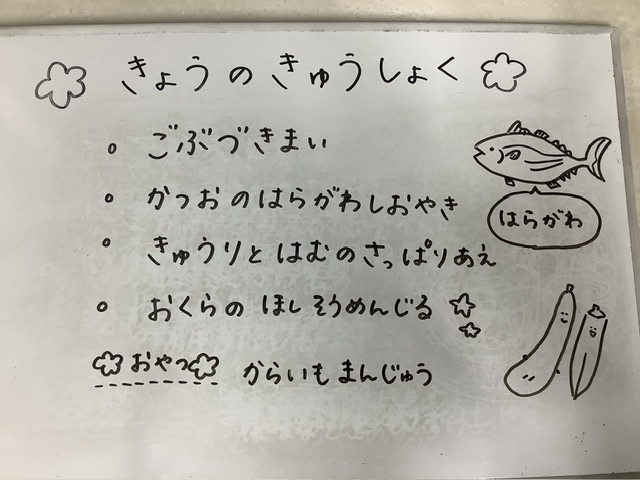 きょうのきゅうしょく
ごぶづきまい
かつおのはらがわしおやき
はらがわ
きゅうりとはむのさっぱりあえ
おくらのほしそうめんじる
おやつ からいもまんじゅう